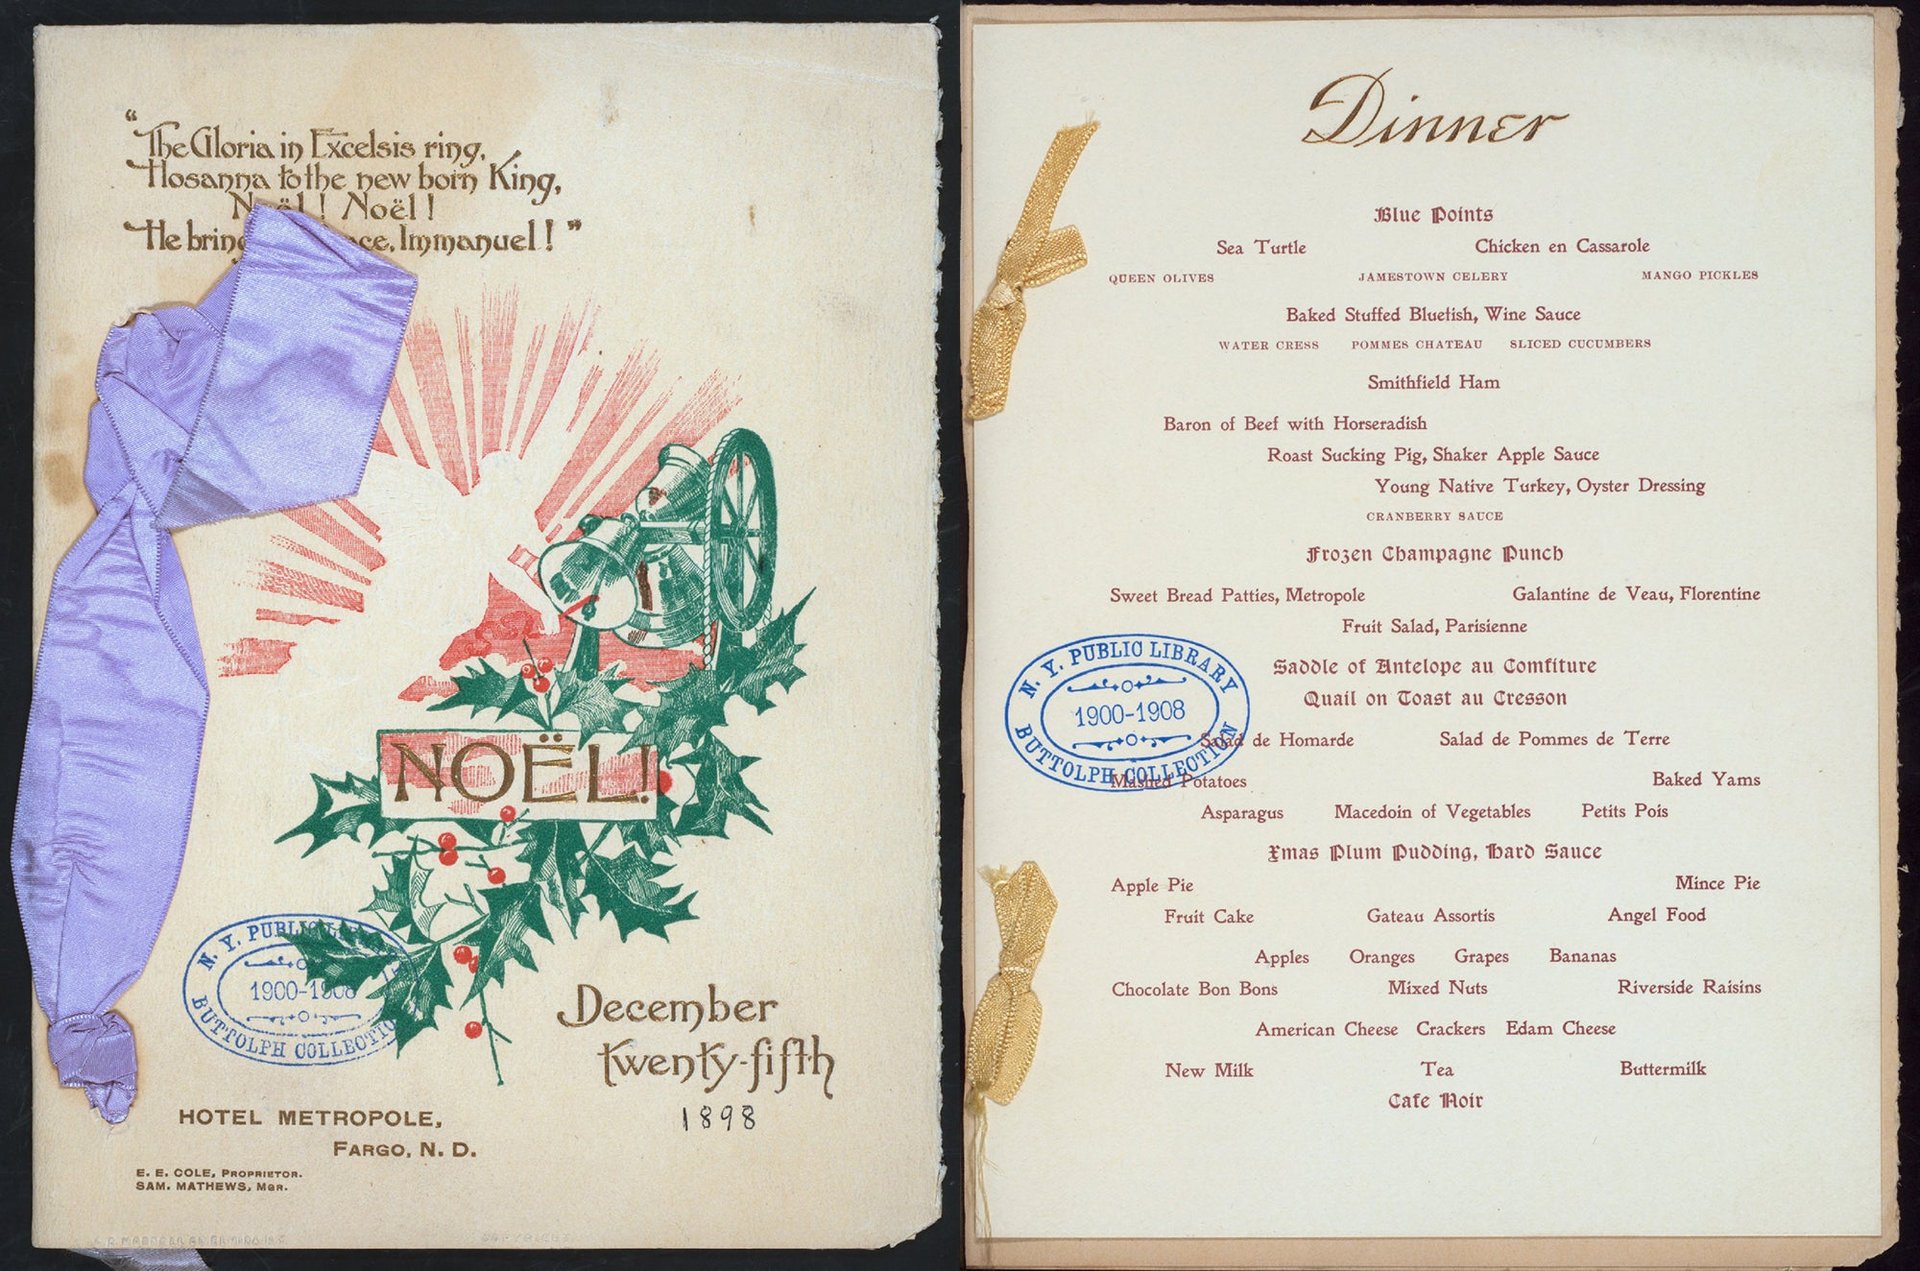 “The Gloria in Excelsis ring,
Hosanna to the new born King,
Noël! Noël!
He Immanuel!”
NOËL!
N. Y. PUBLIC LIBRARY
1900-1908
BUTTOLPH COLLECTION
December
twenty-fifth
1898
HOTEL METROPOLE,
FARGO, N. D.
E. E. COLE, PROPRIETOR.
SAM. MATHEWS, MGR.
Dinner
Blue Points
Sea Turtle Chicken en Cassarole
QUEEN OLIVES JAMESTOWN CELERY MANGO PICKLES
Baked Stuffed Bluefish, Wine Sauce
WATER CRESS POMMES CHATEAU SLICED CUCUMBERS
Smithfield Ham
Baron of Beef with Horseradish
Roast Sucking Pig, Shaker Apple Sauce
Young Native Turkey, Oyster Dressing
CRANBERRY SAUCE
Frozen Champagne Punch
Sweet Bread Patties, Metropole Galantine de Veau, Florentine
Fruit Salad, Parisienne
Saddle of Antelope au Comfiture
Quail on Toast au Cresson
Salad de Homarde Salad de Pommes de Terre
Mashed Potatoes Baked Yams
Asparagus Macedoin of Vegetables Petits Pois
Xmas Plum Pudding, Hard Sauce
Apple Pie Mince Pie
Fruit Cake Gateau Assortis Angel Food
Apples Oranges Grapes Bananas
Chocolate Bon Bons Mixed Nuts Riverside Raisins
American Cheese Crackers Edam Cheese
New Milk Tea Buttermilk
Cafe Noir
N. Y. PUBLIC LIBRARY
1900-1908
BUTTOLPH COLLECTION